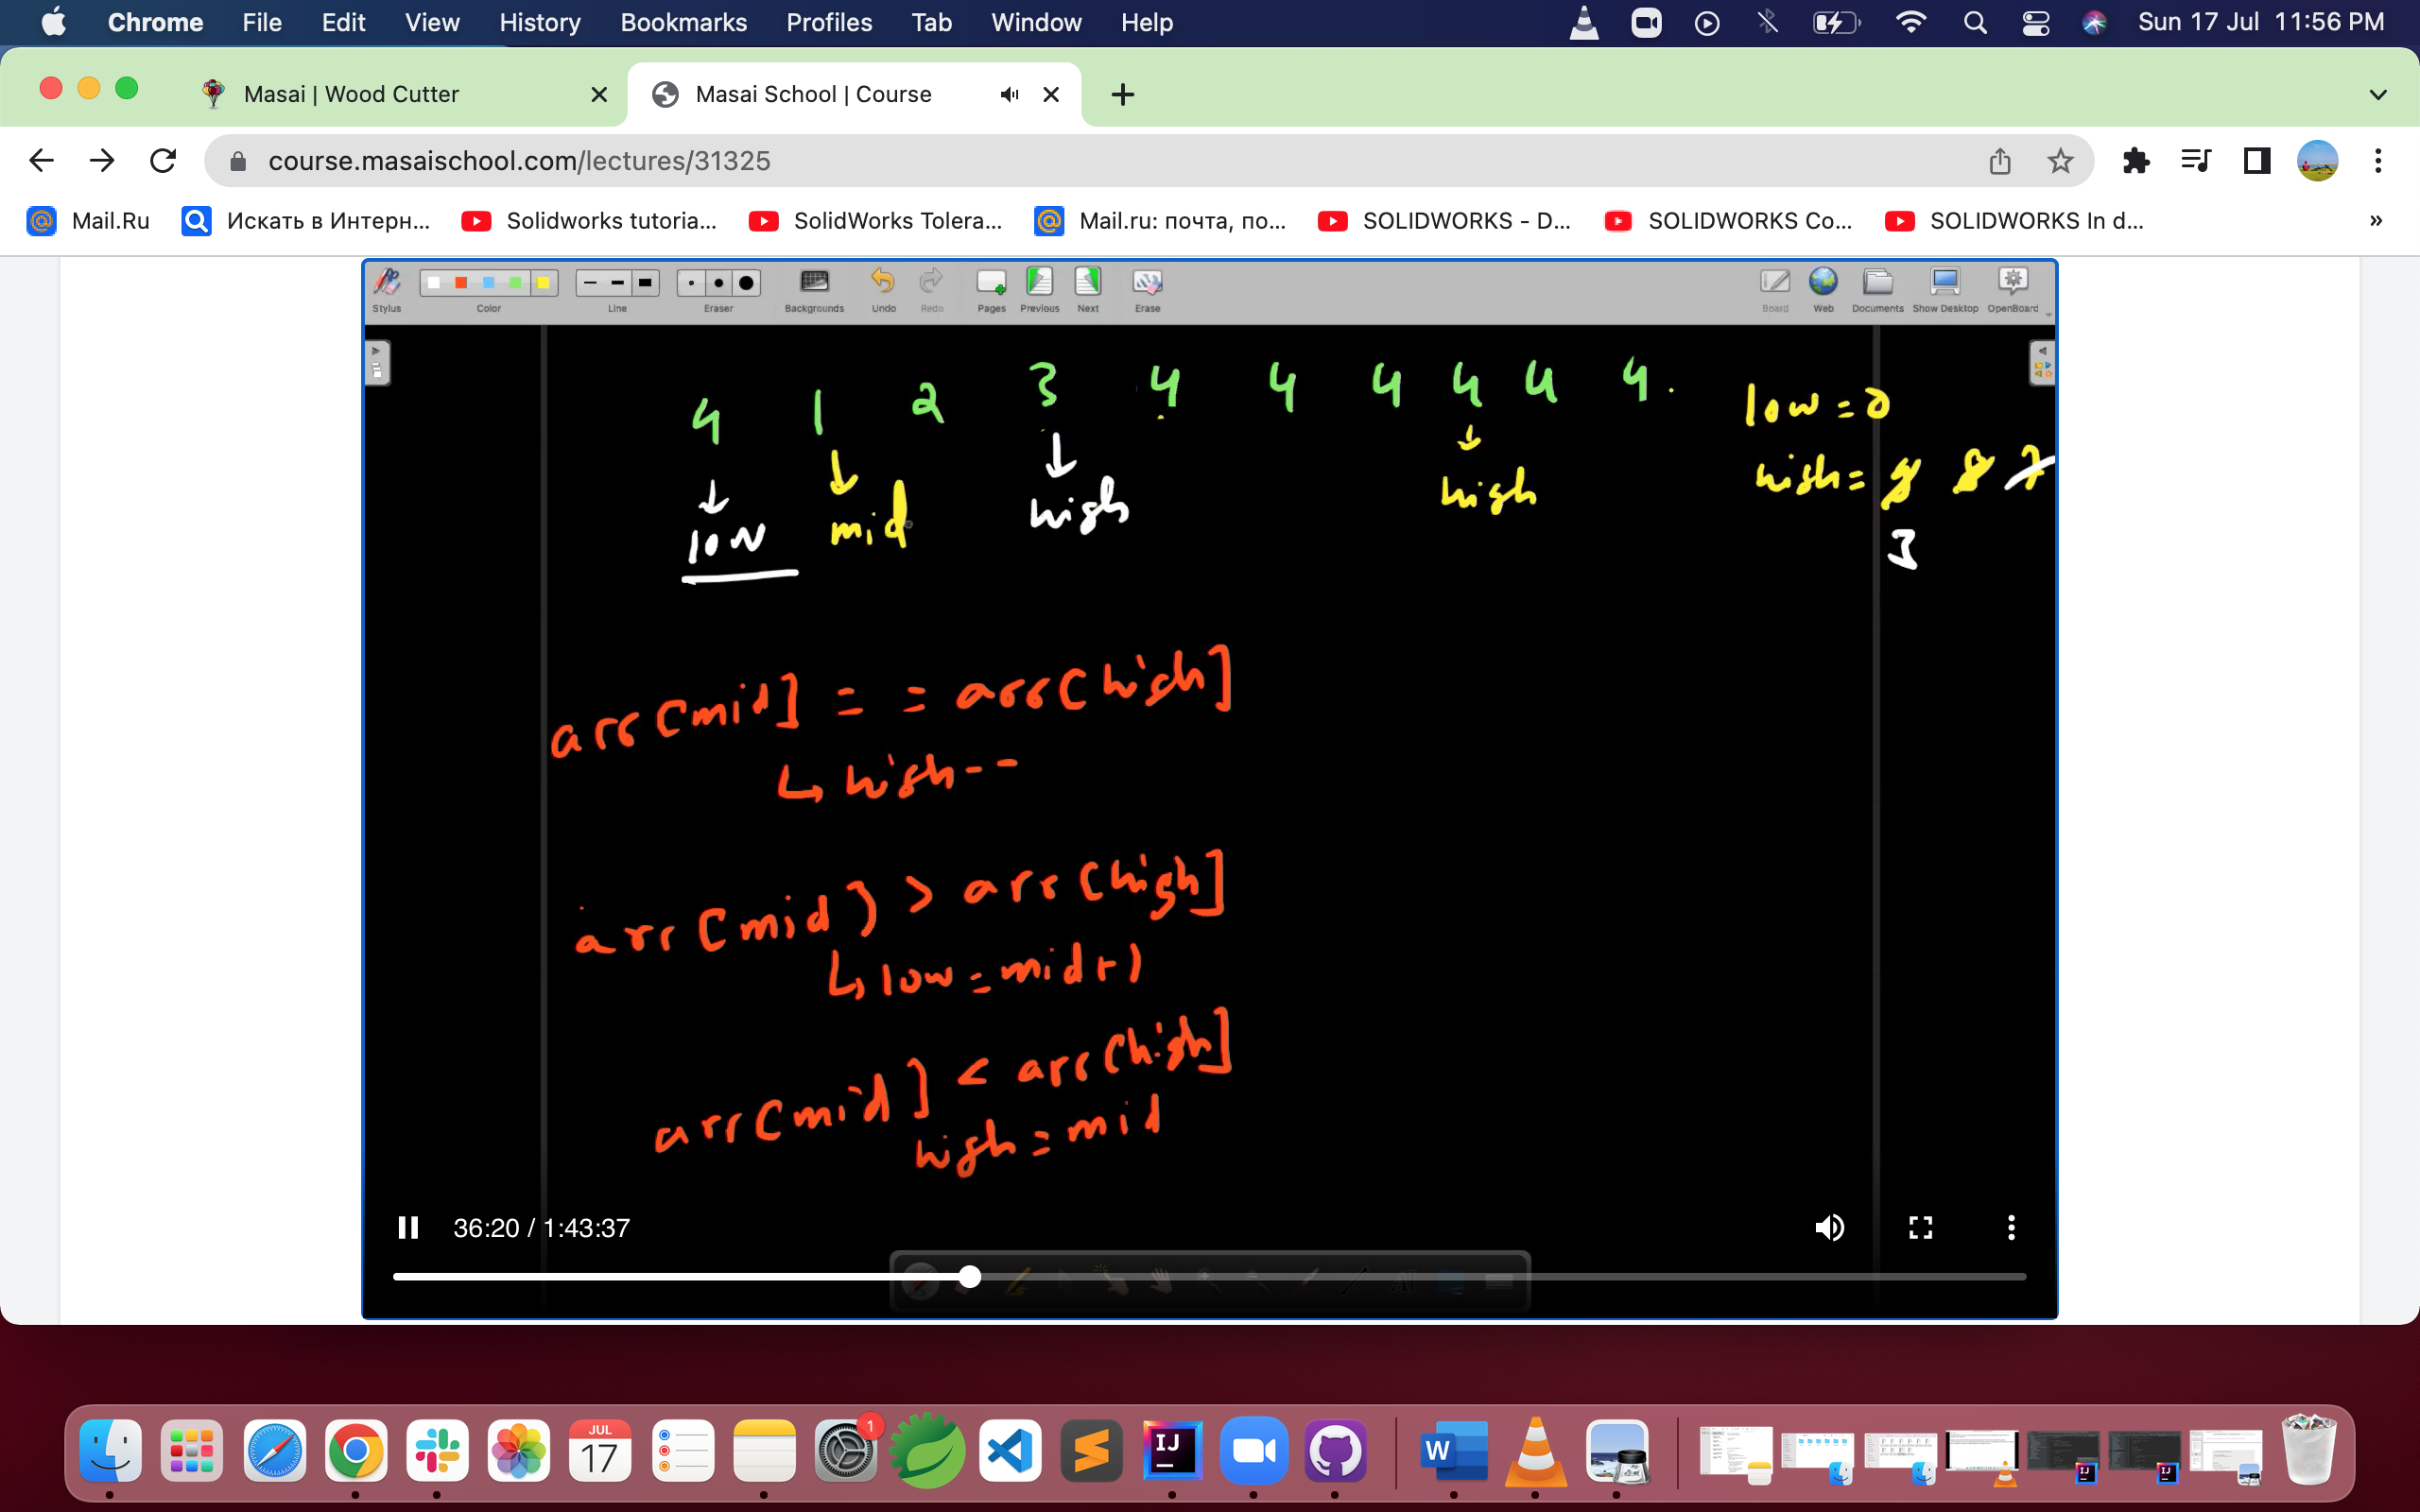 Chrome File Edit View History Bookmarks Profiles Tab Window Help Sun 17 Jul 11:56 PM
Masai | Wood Cutter Masai School | Course
course.masaischool.com/lectures/31325
Mail.Ru Искать в Интерн... Solidworks tutoria... SolidWorks Tolera... Mail.ru: почта, по... SOLIDWORKS - D... SOLIDWORKS Co... SOLIDWORKS In d... »
Stylus Color Line Eraser Backgrounds Undo Redo Pages Previous Next Erase Board Web Documents Show Desktop OpenBoard
4 1 2 3 4 4 4 4 4 4 .
low = 0
low mid high high
high = 9 8 7
3
arr[mid] == arr[high]
↳ high--
arr[mid] > arr[high]
↳ low = mid+1
arr[mid] < arr[high]
high = mid
36:20 / 1:43:37
JUL
17
1
IJ
W
IJ
IJ